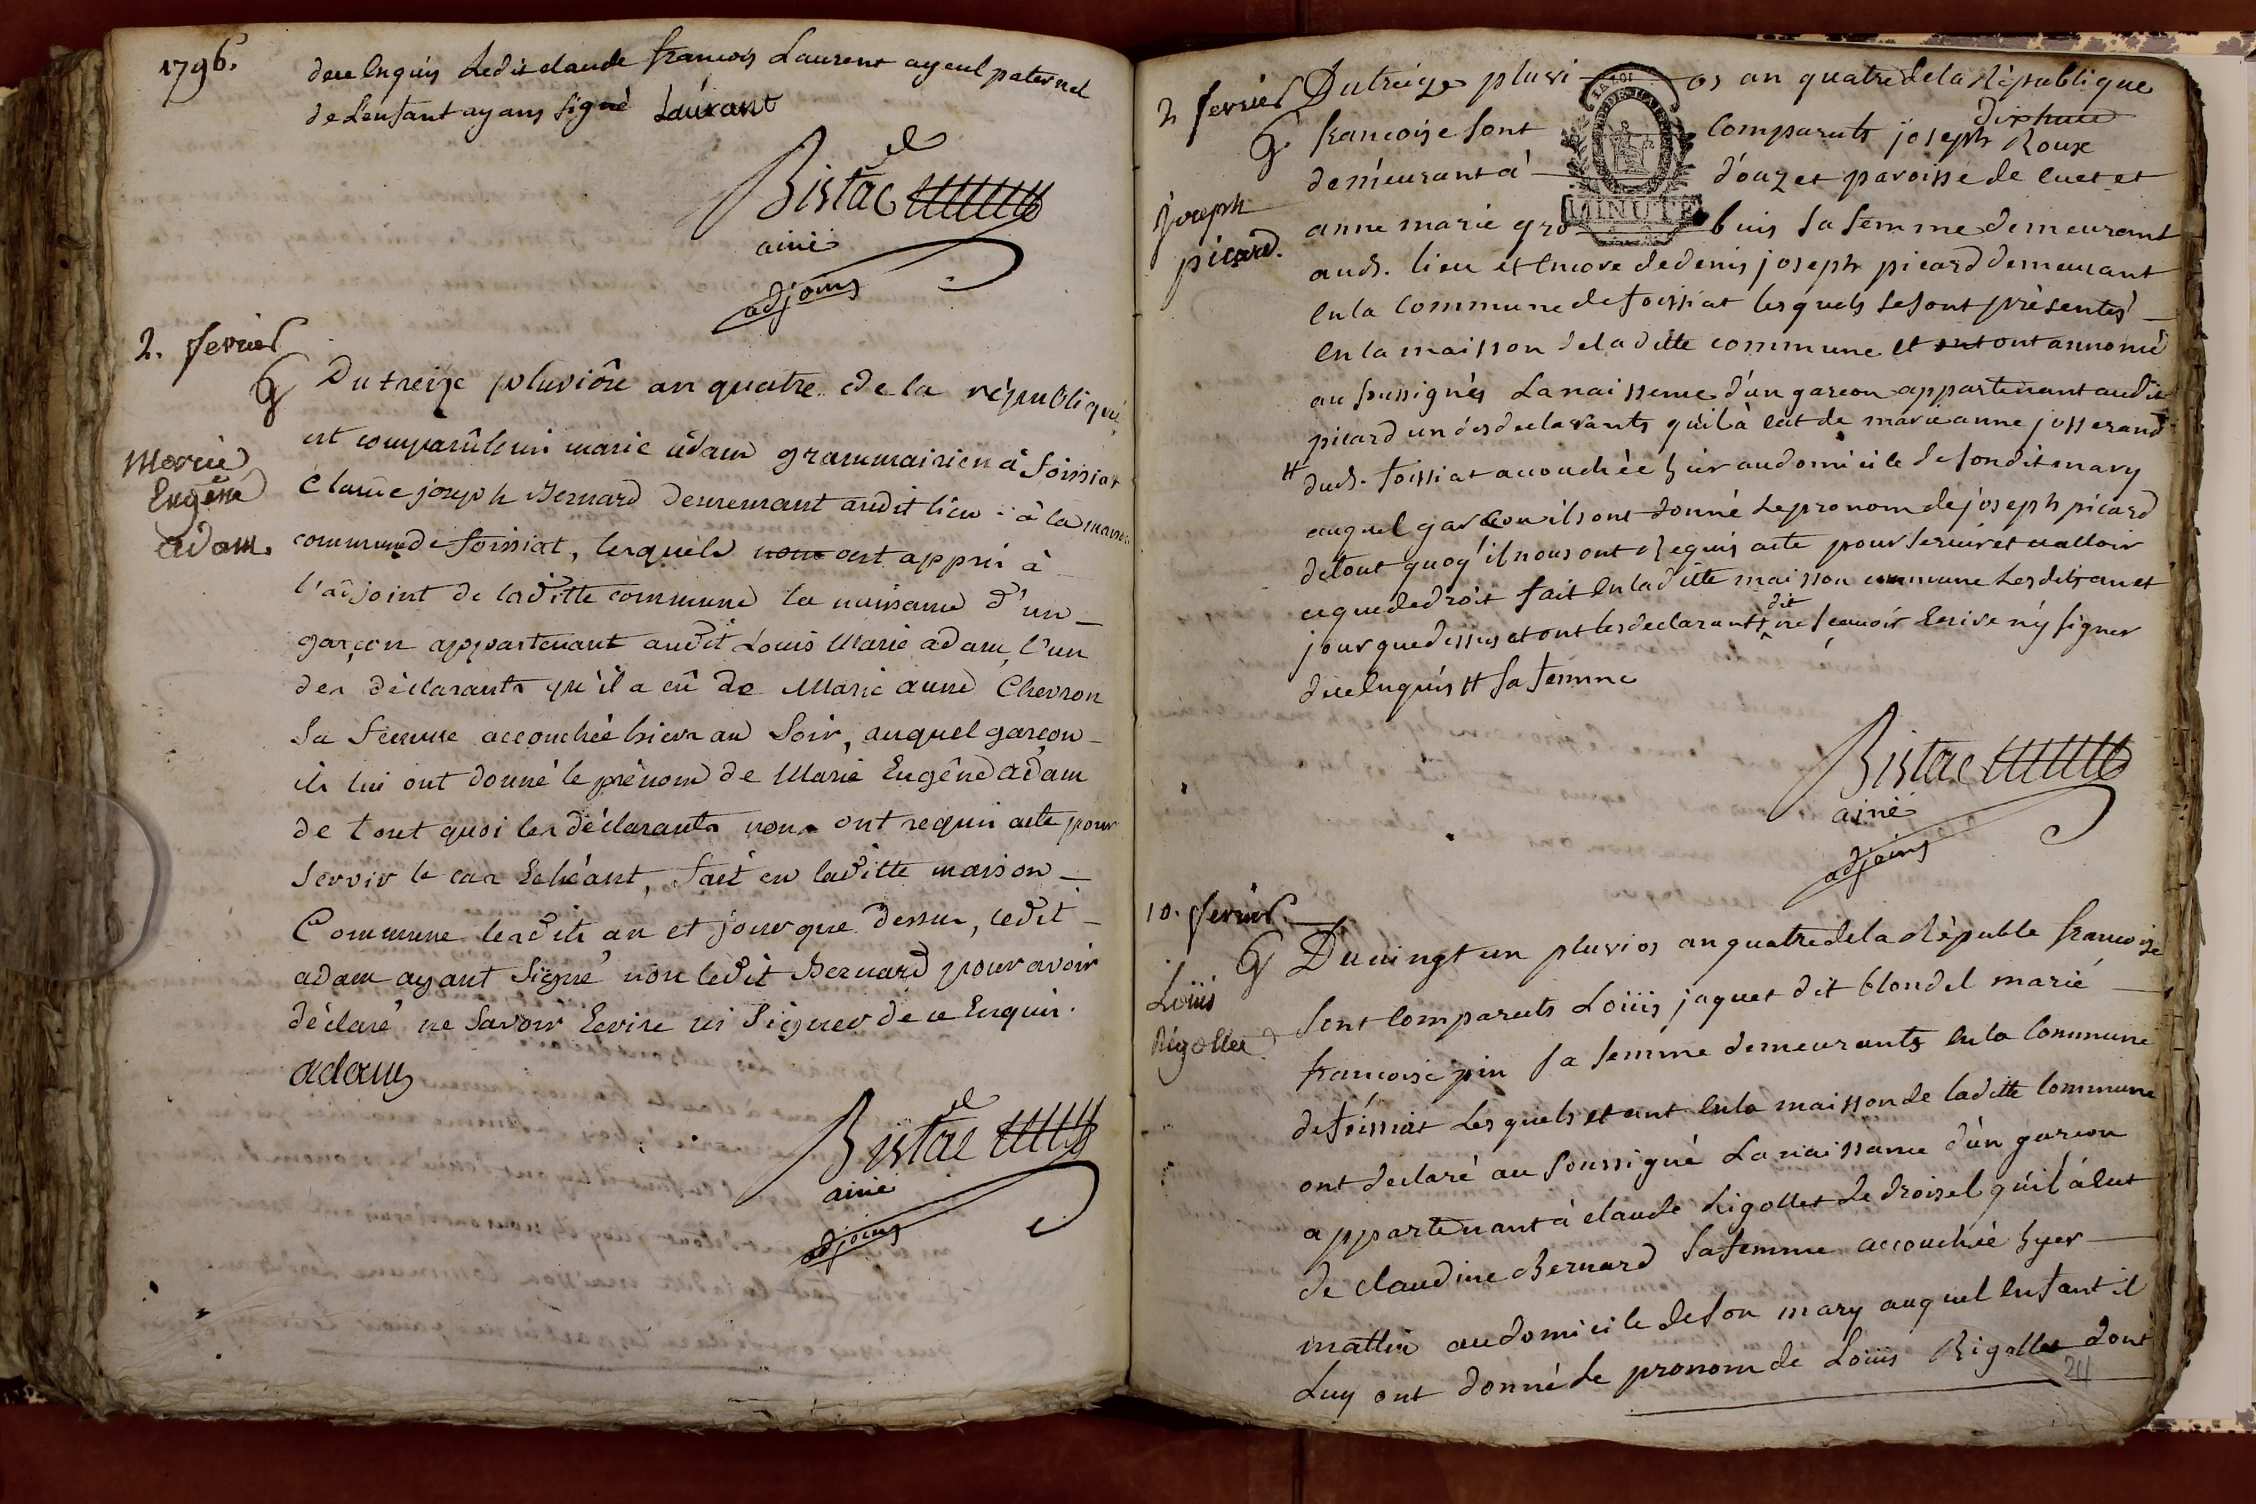 1796.
de ce enquis Ledit claude francois Laurent ayeul paternel
de Lenfant ayans signé Laurant
Bistac
ainé
adjoins
2. fevrier
G
Marie
Eugêne
adam.
Du treize pluviôse an quatre de la république
est comparû marie adam grammairien à foissiat
Claude joseph Bernard demeurant audit lieu à la maison
commune de foissiat, lesquels nous ont appris à
l'adjoint de laditte commune la naissance d'un
garçon appartenant audit Louis Marie adam, l'un
des déclarants qu'il a eû de Marie anne Chevron
sa femme accouchée hier au soir, auquel garçon
ils lui ont donné le prénom de Marie Eugêne adam
de tout quoi les déclarants nous ont requis acte pour
servir le cas Echéant, fait en laditte maison
Commune lesdits an et jour que dessus, ledit
adam ayant signé non ledit Bernard pour avoir
déclaré ne savoir Ecrire ni signer de ce Enquis.
adam
Bistac
ainé
adjoins
2 fevrier
G
joseph
picard.
Du treize pluvios an quatre de la République
francoise sont comparuts joseph Roux
demeurant à d'ouzet paroisse de cuet et
anne marie gro buis sa femme demeurant
aud. lieu et encore de denis joseph picard demeurant
en la commune de foissiat lesquels se sont présentés
en la maisson de laditte commune et ont ont annoncé
au soussignés La naissence d'un garcon appartenant audit
picard un des declarants qu'il à eut de marie anne josserand
# dud. foissiat accouchée hier au domicile de sondit mary
auquel garcon ils ont donné le pronom de joseph picard
de tout quoy il nous ont requis acte pour servir et valloir
ce que de droit fait en laditte maisson commune Lesdits an et
jour que dessus et ont les declarants dit ne scauoir Ecrire ny signer
de ce enquis # sa femme
Bistac
ainé
adjoins
10. fevrier
G
Loüis
Rigollet
Du vingt un pluvios an quatre de la Républe francoise
sont Comparuts Loüis jaquet dit blondel marié
francoise pin sa femme demeurants en la Commune
de foissiat Lesquels etant en la maisson de laditte Commune
ont declaré au soussigné La naissance d'un garcon
appartenant à claude Rigollet de droisel qu'il à eut
de claudine Bernard sa femme accouchée hyer
mattin au domicile de son mary auquel enfant il
Luy ont donné le pronom de Loüis Rigollet dont
24